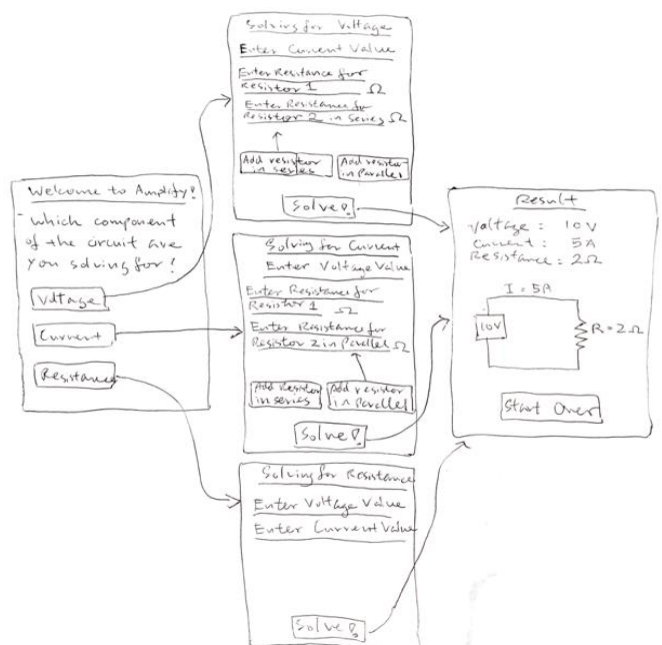 Welcome to Amplify!
Which component
of the circuit are
you solving for?
Voltage
Current
Resistance
Solving for Voltage
Enter Current Value
Enter Resistance for
Resistor 1 Ω
Enter Resistance for
Resistor 2 in series Ω
Add resistor
in series
Add resistor
in Parallel
Solve!
Solving for Current
Enter Voltage Value
Enter Resistance for
Resistor 1 Ω
Enter Resistance for
Resistor 2 in Parallel Ω
Add Resistor
in series
Add resistor
in Parallel
Solve!
Solving for Resistance
Enter Voltage Value
Enter Current Value
Solve!
Result
Voltage: 10V
Current: 5A
Resistance: 2Ω
I = 5A
10V
R = 2Ω
Start Over